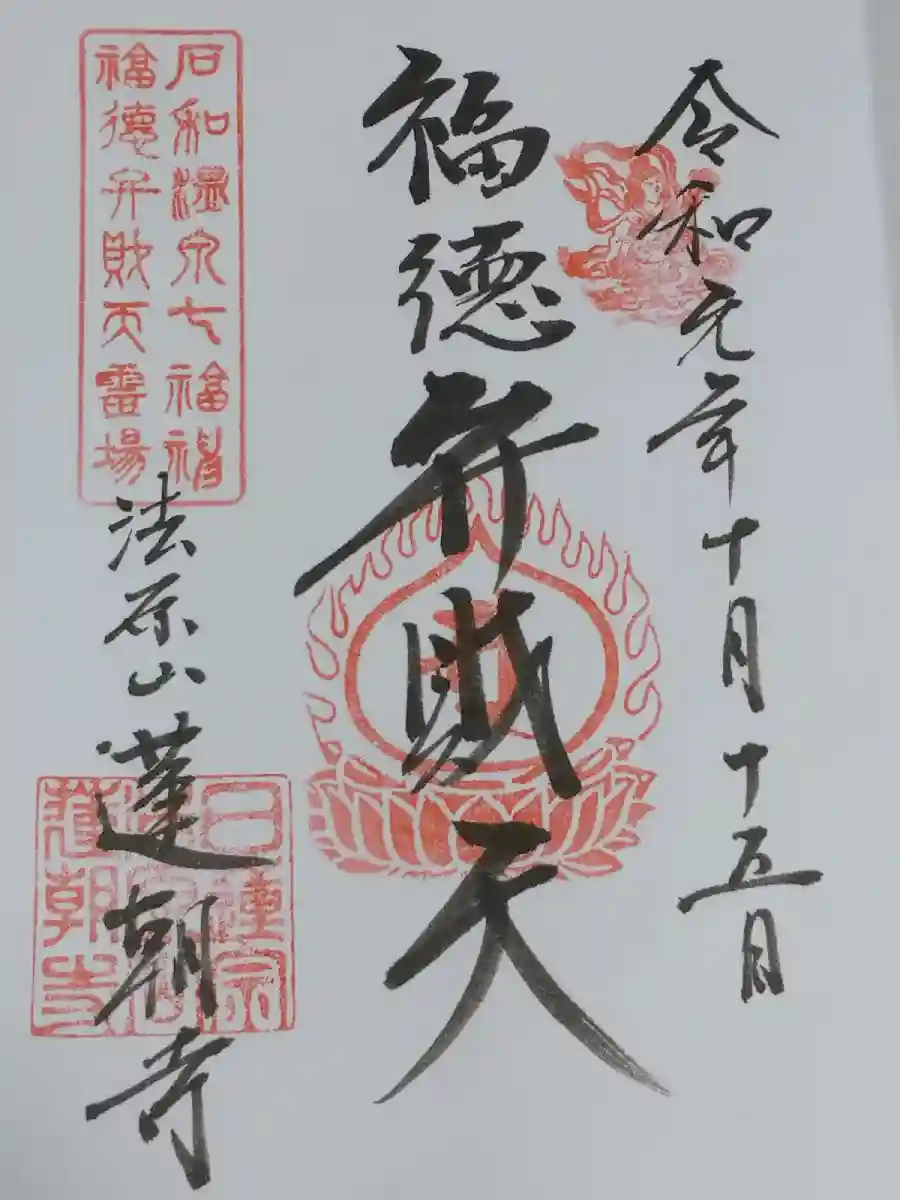 令和元年十月十五日
福徳弁財天
石和温泉七福神
福徳弁財天霊場
法原山蓮朝寺
日蓮宗
蓮朝寺